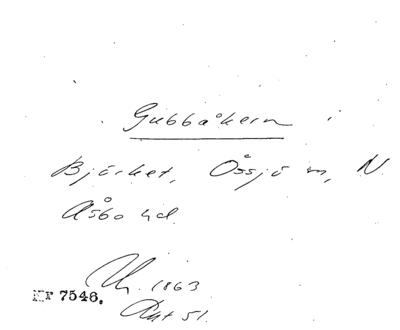 Gubbåkern i
Björket, Össjö sn, N.
Åsbo hd.
1863
Nr 7546.
Akt 51.